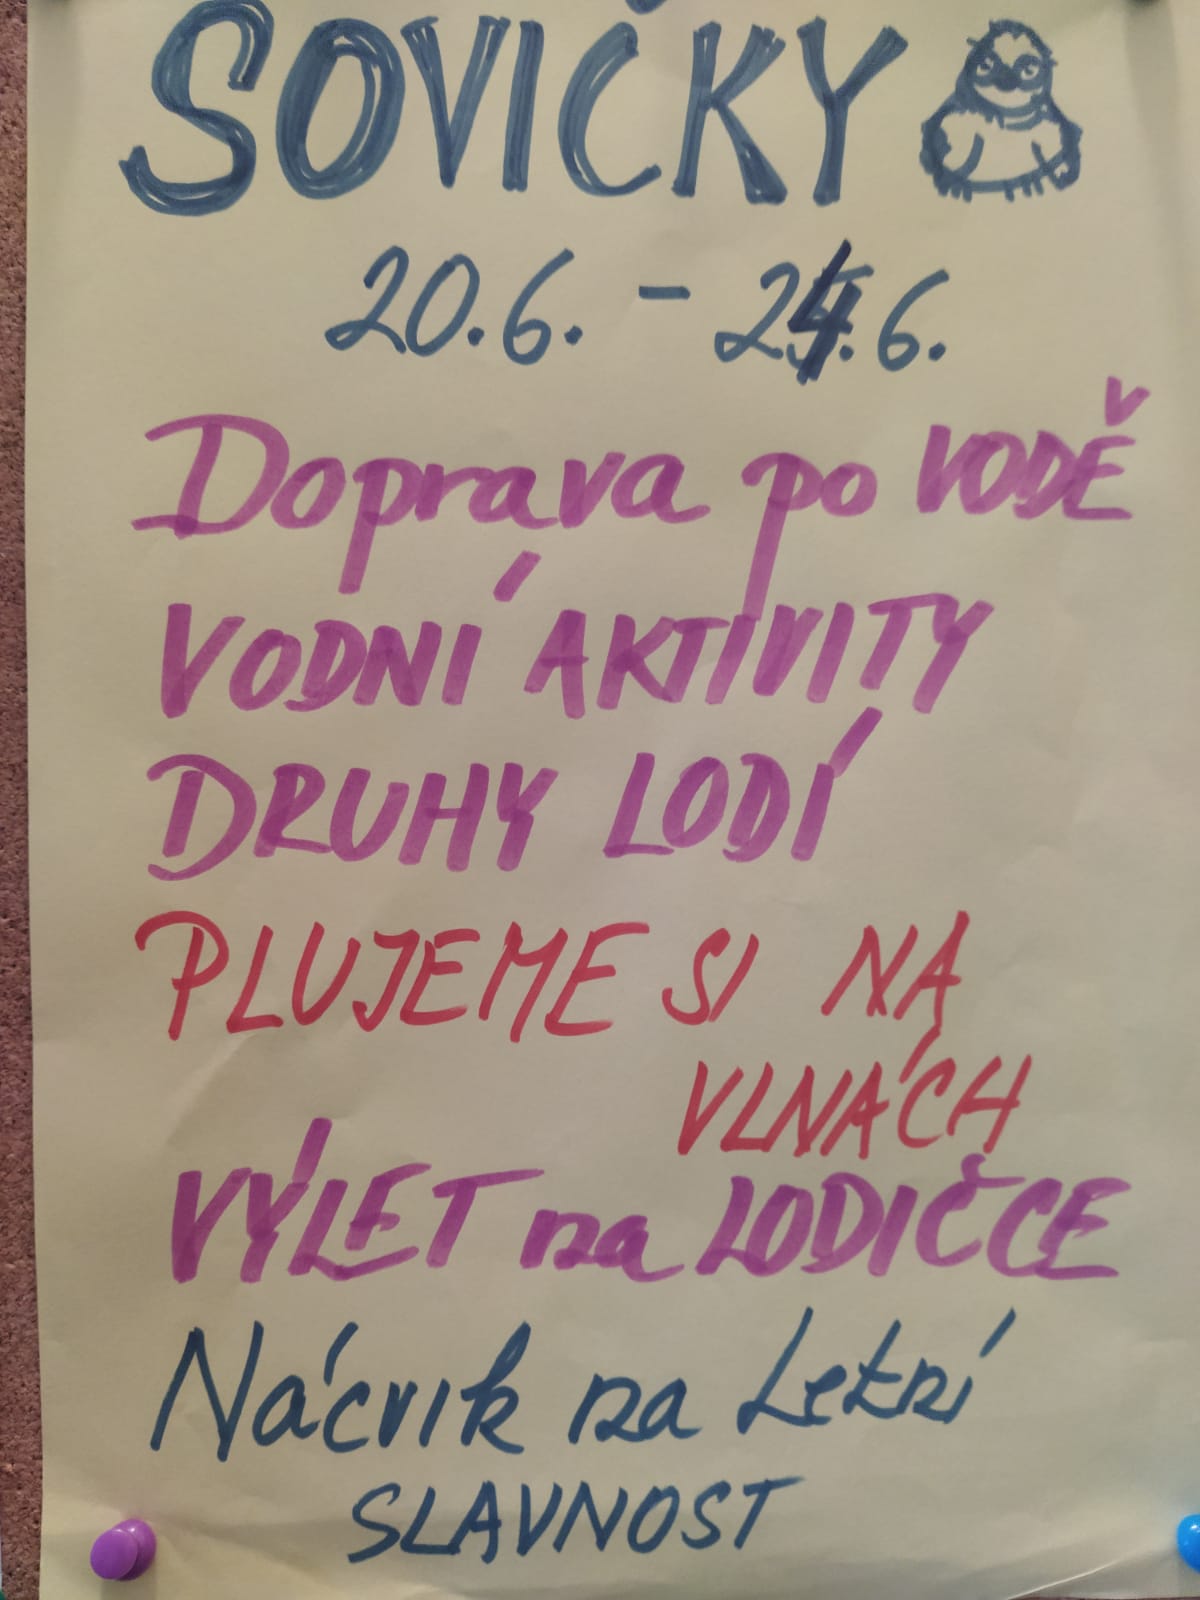 SOVIČKY
20.6. - 24.6.
Doprava po VODĚ
VODNÍ AKTIVITY
DRUHY LODÍ
PLUJEME SI NA
VLNÁCH
VÝLET na LODIČCE
Nácvik na Letní
SLAVNOST